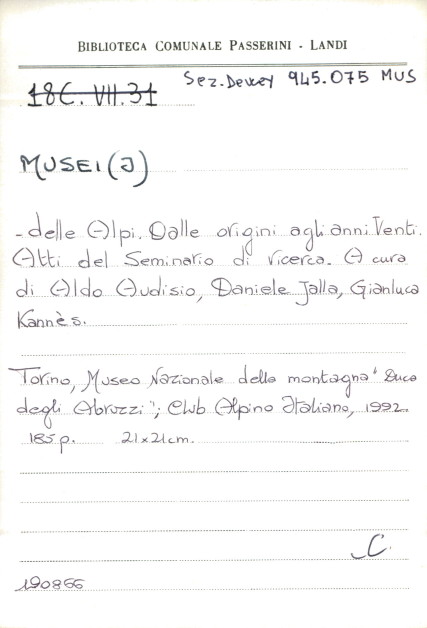 BIBLIOTECA COMUNALE PASSERINI - LANDI
18C. VII.31 Sez.Dewey 945.075 MUS
MUSEI (I)
- delle Alpi. Dalle origini agli anni Venti.
Atti del Seminario di ricerca. A cura
di Aldo Audisio, Daniele Jalla, Gianluca
Kannès.
Torino, Museo Nazionale della montagna "Duca
degli Abruzzi"; Club Alpino Italiano, 1992.
185 p. 21x21cm.
C.
190866